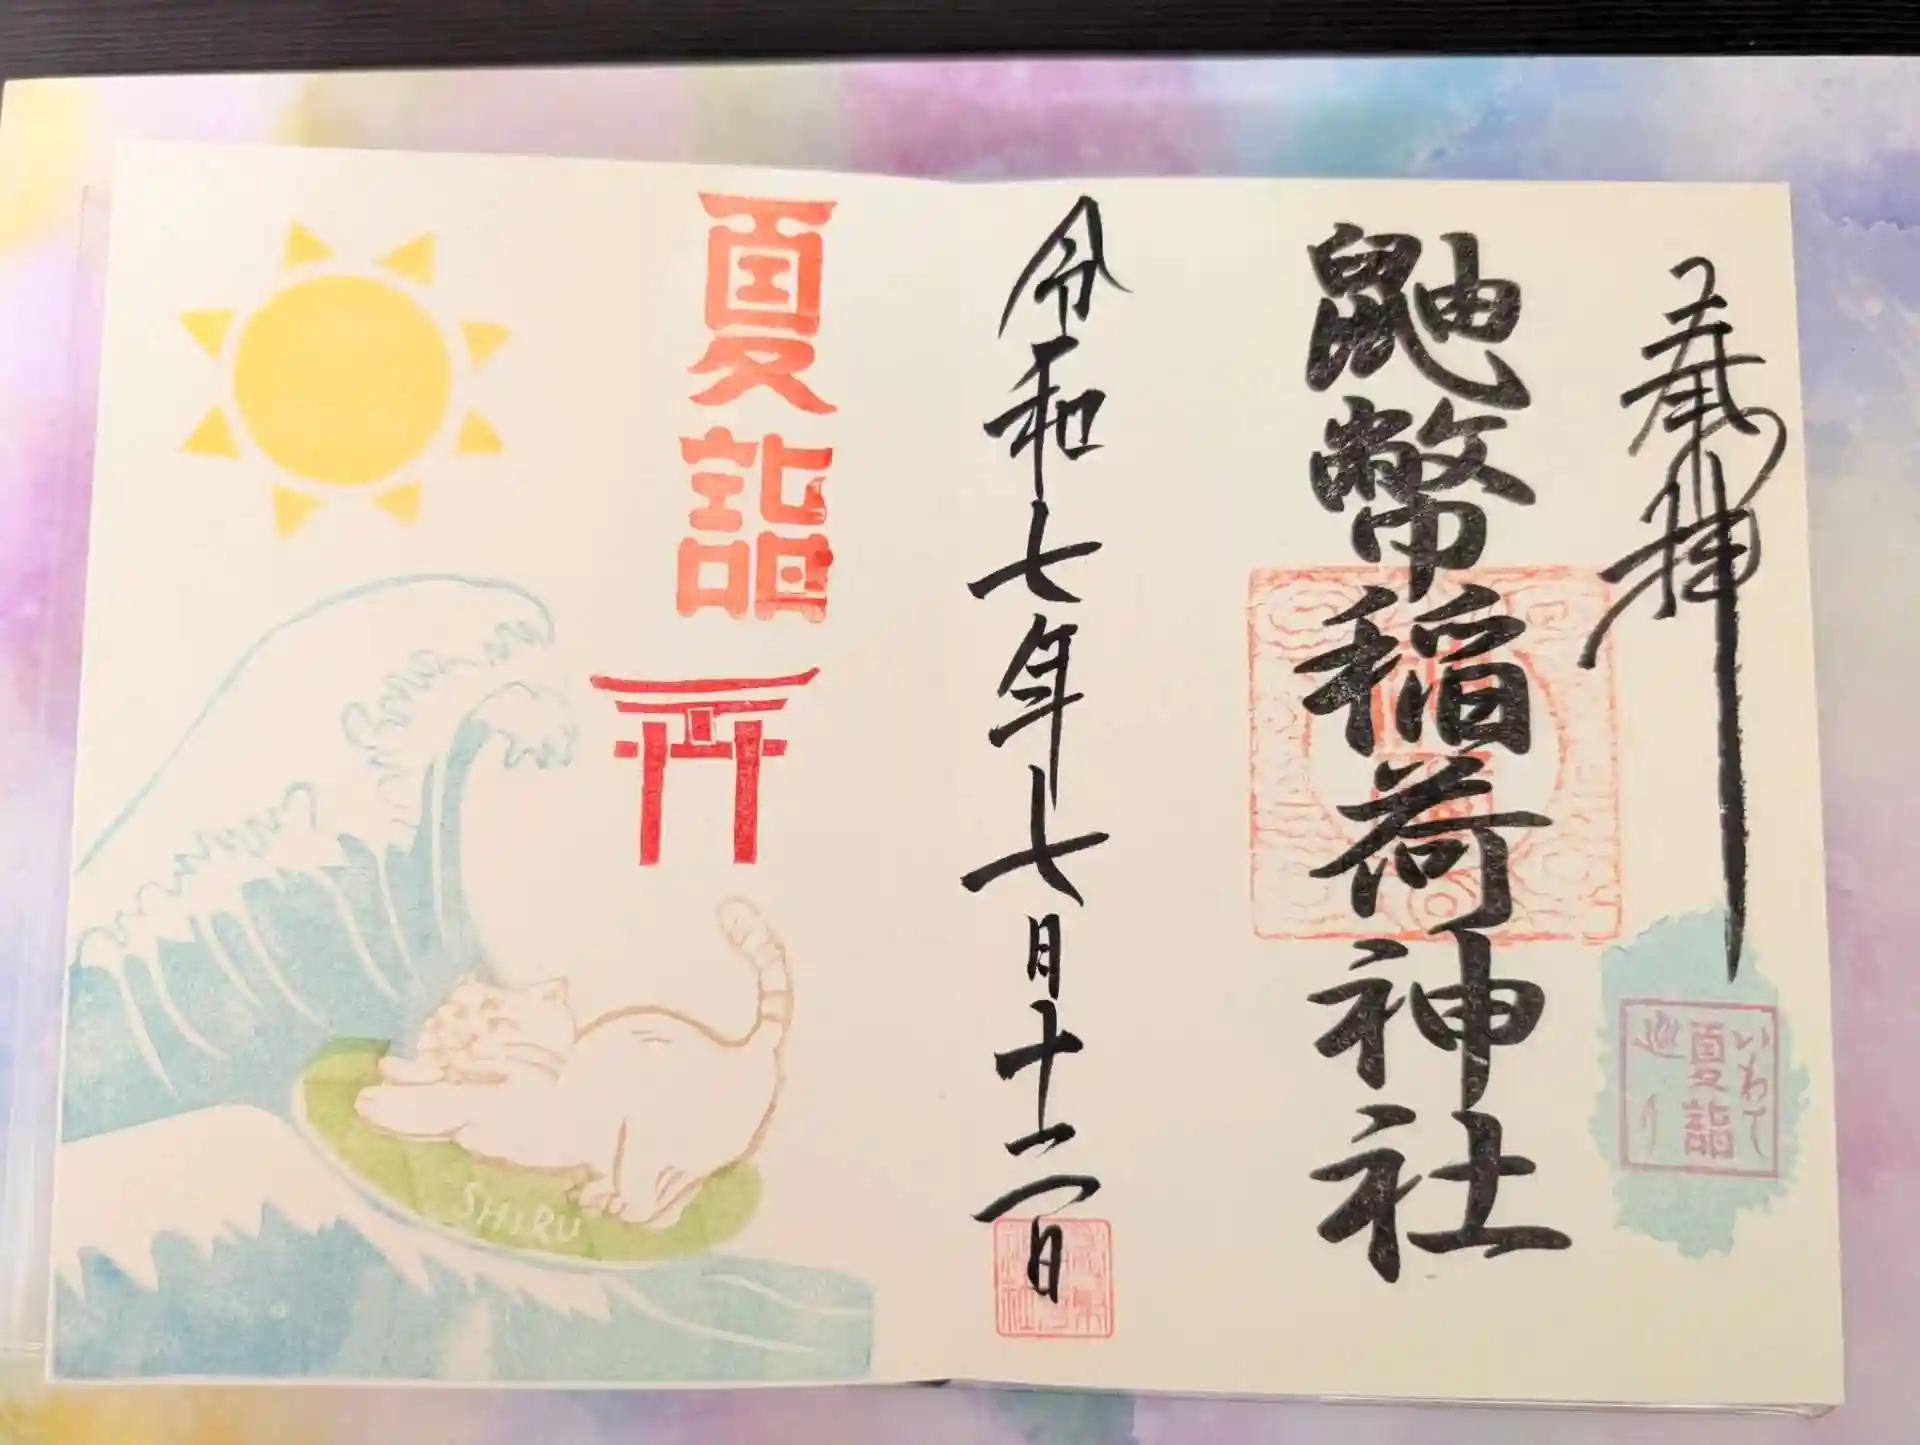 奉拝
鼬幣稲荷神社
いわて
夏詣
巡り
令和七年七月十二日
夏詣
SHIRU